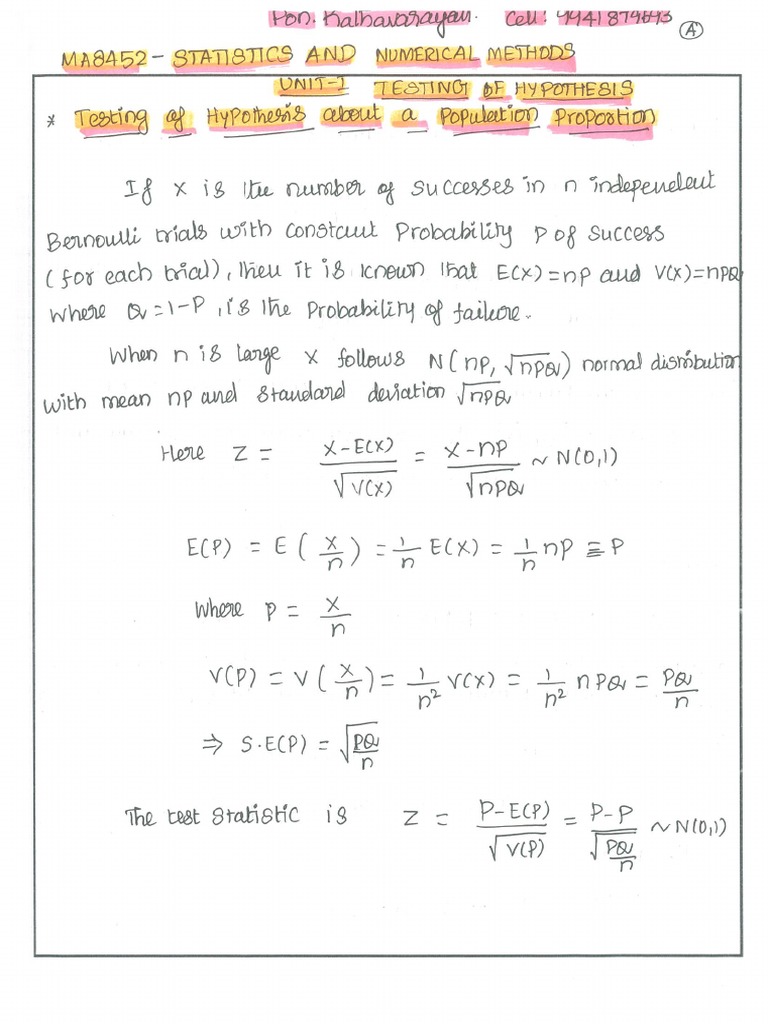 Pon. Kathavarayan. Cell: 9941879693
A
MA8452 - STATISTICS AND NUMERICAL METHODS
UNIT-I TESTING OF HYPOTHESIS
* Testing of Hypothesis about a Population Proportion
If X is the number of successes in n independent
Bernoulli trials with constant Probability P of success
(for each trial), then it is known that E(X)=nP and V(X)=nPQ
where Q=1-P, is the Probability of failure.
When n is large X follows N(nP, √nPQ) normal distribution
with mean nP and standard deviation √nPQ
Here Z = (X-E(X))/√V(X) = (X-nP)/√nPQ ~ N(0,1)
E(P) = E(X/n) = 1/n E(X) = 1/n nP ≡ P
where P = X/n
V(P) = V(X/n) = 1/n² V(X) = 1/n² nPQ = PQ/n
⇒ S.E(P) = √(PQ/n)
The test statistic is Z = (P-E(P))/√V(P) = (P-P)/√(PQ/n) ~ N(0,1)